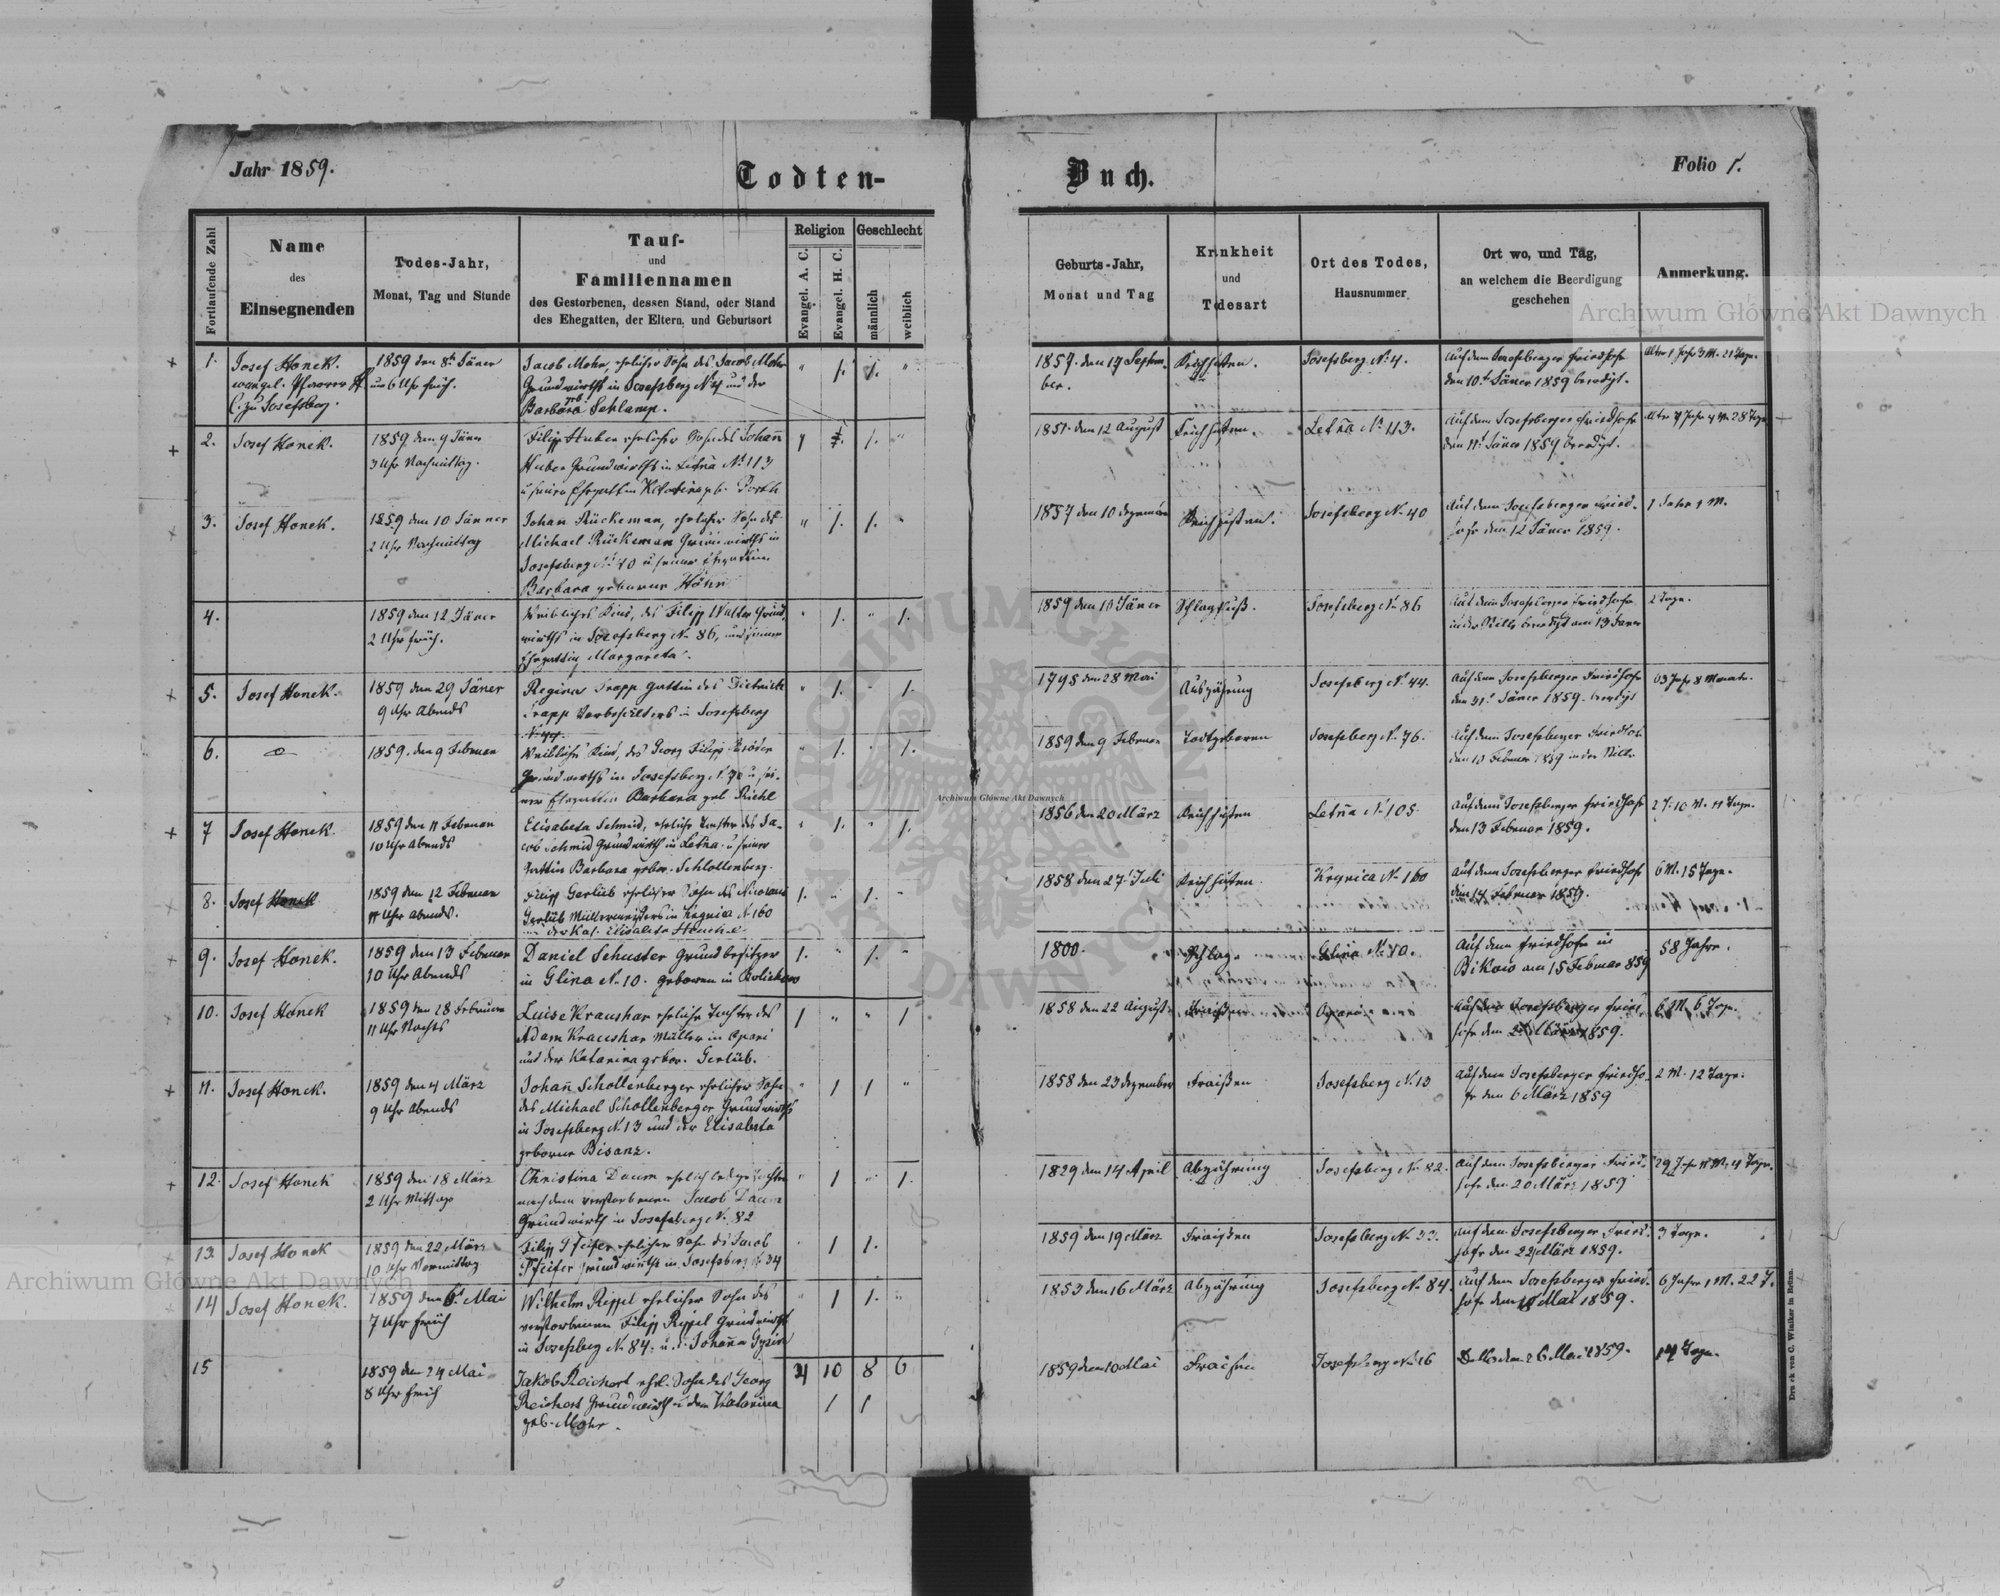 Jahr 1859.
Todten-
Buch.
Folio 1.
Fortlaufende Zahl
Name
des
Einsegnenden
Todes-Jahr,
Monat, Tag und Stunde
Tauf-
und
Familiennamen
des Gestorbenen, dessen Stand, oder Stand
des Ehegatten, der Eltern, und Geburtsort
Religion
Evangel. A. C.
Evangel. H. C.
Geschlecht
männlich
weiblich
Geburts-Jahr,
Monat und Tag
Krankheit
und
Todesart
Ort des Todes,
Hausnummer
Ort wo, und Tag,
an welchem die Beerdigung
geschehen
Anmerkung.
1.
Josef Honek.
evangel. Pfarrer
zu Josefsberg.
1859 den 8t Jäner
um 6 Uhr früh.
Jacob Mohr, ehlicher Sohn des Jacob Mohr
Grundwirths in Josefsberg N. 4 und der
Barbara geb. Schlamp.
1857. den 17 Septem-
ber.
Keichhusten.
Josefsberg N. 4.
Auf dem Josefsberger Friedhofe
den 10t Jäner 1859 beerdigt.
Alter 1 Jahr 3 M. 21 Tage.
2.
Josef Honek.
1859 den 9 Jäner
3 Uhr Nachmittag.
Filipp Huber ehelicher Sohn des Johann
Huber Grundwirths in Letnia N. 113
u seiner Ehegattin Katarina geb.
1851. den 12 August
Keichhusten.
Letnia N. 113.
Auf dem Josefsberger Friedhofe
den 11t Jäner 1859 beerdigt.
28 Tage
3.
Josef Honek.
1859 den 10 Jänner
2 Uhr Nachmittag
Johan Rückeman, ehelicher Sohn des
Michael Rückeman Grundwirths in
Josefsberg N. 40 u seiner Ehegattin
Barbara geborene Höhn
1857 den 10 Dezember
Keichhusten.
Josefsberg N. 40
Auf dem Josefsberger Fried-
hofe den 12 Jäner 1859.
1 Jahr 1 M.
4.
1859 den 12 Jäner
2 Uhr früh.
Weibliches Kind, des Filipp Walter Grund-
wirths in Josefsberg N. 86, und seiner
Ehegattin Margareta.
1859 den 10 Jäner
Schlagfluß.
Josefsberg N. 86
Auf dem Josefsberger Friedhofe
in der Stille beerdigt am 13 Jäner
2 Tage.
5.
Josef Honek.
1859 den 29 Jäner
9 Uhr Abends
Regina Trapp Gattin des
Trapp in Josefsberg
N. 44.
1795 den 28 Mai
Auszährung
Josefsberg N. 44.
Auf dem Josefsberger Friedhofe
den 31t Jäner 1859. beerdigt
63 Jahr 8 Monate.
6.
1859. den 9 Februar
Weibliches Kind, des Georg Filipp
Grundwirths in Josefsberg N. 76 u sei-
ner Ehegattin Barbara geb Riehl
1859 den 9 Februar
Todtgeboren
Josefsberg N. 76.
Auf dem Josefsberger Friedhofe
den 10 Februar 1859 in der Stille
7
Josef Honek.
1859 den 11 Februar
10 Uhr Abends
Elisabeta Schmid, ehliche Tochter des Ja-
cob Schmid Grundwirth in Letnia u seiner
Gattin Barbara gebor. Schlollenberg.
1856 den 20 März
Keichhusten
Letnia N. 105
Auf dem Josefsberger Friedhofe
den 13 Februar 1859.
8.
Josef Honek
1859 den 12 Februar
11 Uhr abends.
Filipp Gerlüb ehelicher Sohn des Nicolaus
Gerlüb Müllermeisters in Krynica N. 160
1858 den 27t Juli
Keichhusten
Krynica N. 160
Auf dem Josefsberger Friedhofe
den 14 Februar 1859.
6 M. 15 Tage.
9.
Josef Honek.
1859 den 13 Februar
10 Uhr Abends
Daniel Schuster Grundbesitzer
in Glina N. 10. geboren in Bolichow
1800.
Schlag.
Auf dem Friedhofe in
Bikow am 15 Februar 859
58 Jahre.
10.
Josef Honek
1859 den 28 Februar
11 Uhr Nachts
Luise Kraushar ehliche Tochter des
Adam Kraushar Müller in Opari
und der Katarina gebor. Gerlüb.
1858 den 22 August
Fraißen
Opari
Auf dem Josefsberger Fried-
hofe den 2t März 1859.
6 M. 6 Tage.
11.
Josef Honek.
1859 den 4 März
9 Uhr Abends
Johan̄ Schollenberger ehelicher Sohn
des Michael Schollenberger Grundwirths
in Josefsberg N. 13 und der Elisabeta
geborne Bisanz.
1858 den 23 Dezember
Fraißen
Josefsberg N. 13
Auf dem Josefsberger Friedho-
fe den 6 März 1859
2 M. 12 Tage.
12.
Josef Honek
1859 den 18 März
2 Uhr Mittags
Christina Daum
nach dem verstorbenen Jacob Daum
Grundwirth in Josefsberg N. 82
1829 den 14 April
Abzährung
Josefsberg N. 82.
Auf dem Josefsberger Fried-
hofe den 20 März 1859
29 Jahr 11 M. 4 Tage.
13.
Josef Honek
1859 den 22 März
10 Uhr Vormittag
Filipp Pfeifer ehelicher Sohn des Jacob
Pfeifer Grundwirths in Josefsberg N. 34
1859 den 19 März
Fraißen
Auf dem Josefsberger Fried-
hofe den 22 März 1859.
3 Tage.
14
Josef Honek.
1859 den 6t Mai
7 Uhr früh
Wilhelm Rippel ehelicher Sohn des
verstorbenen Filipp Rippel Grundwirth
in Josefsberg N. 84. u. d. Johanna
1853 den 16 März
Abzährung
Josefsberg N. 84.
Auf dem Josefsberger Fried-
hofe den Mai 1859.
6 Jahre 1 M. 22 T.
15
1859 den 24 Mai
8 Uhr früh
Jakob Reichert ehel. Sohn des Georg
Reichert Grundwirth u der Katarina
geb. Mohr.
4 10 8 6
1859 den 10 Mai
Fraisen
Josefsberg N. 16
Detto den 26 Mai 1859.
14 Tage.
Druck von C. Winiker in Brünn.
Archiwum Główne Akt Dawnych
Archiwum Główne Akt Dawnych
Archiwum Główne Akt Dawnych
ARCHIWUM GŁÓWNE
AKT DAWNYCH